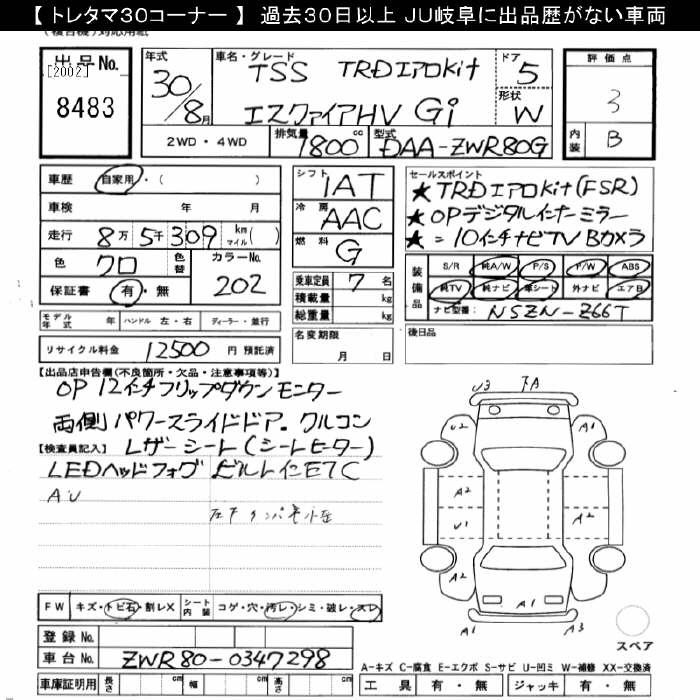 【 トレタマ30コーナー 】 過去30日以上 JU岐阜に出品歴がない車両
出品No. [2002] 8483
年式 30/8月
車名・グレード TSS TRDエアロKit エスクァイアHV Gi
ドア 5
形状 W
評価点 3
内装 B
2WD・4WD 排気量 1800 cc 型式 DAA-ZWR80G
車歴 自家用・( )
車検 年 月
走行 8万5千309 km マイル( )
色 クロ 色替 カラーNo. 202
保証書 有・無
シフト IAT
冷房 AAC
燃料 G
乗車定員 7 名
積載量 kg
総重量 kg
セールスポイント
★ TRDエアロKit(FSR)
★ OPデジタルインナーミラー
★ = 10インチナビTV Bカメラ
装備品 S/R 純A/W P/S P/W ABS
純TV 純ナビ 革シート 外ナビ エアB
ナビ型番: NSZN-Z66T
モデル年式 年 ハンドル 左・右 ディーラー・並行
名変期限 月 日
後日品
リサイクル料金 12500 円 預託済
【出品店申告欄(不良箇所・欠品・注意事項等)】
OP 12インチフリップダウンモニター
両側パワースライドドア. クルコン
【検査員記入】 レザーシート(シートヒーター)
LEDヘッドフォグ ビルトインETC
AU
U3 FA
U2 A1
A2
U1 A2
A2 A2
A1 A1 A3
スペア
FW キズ・トビ石・割レX シート内装 コゲ・穴・汚レ・シミ・破レ・スレ
登録No.
車台No. ZWR80-0347298
A-キズ C-腐食 E-エクボ S-サビ U-凹ミ W-補修 XX-交換済
車庫証明用 長さ cm 幅 cm 高さ cm 工具 有・無 ジャッキ 有・無